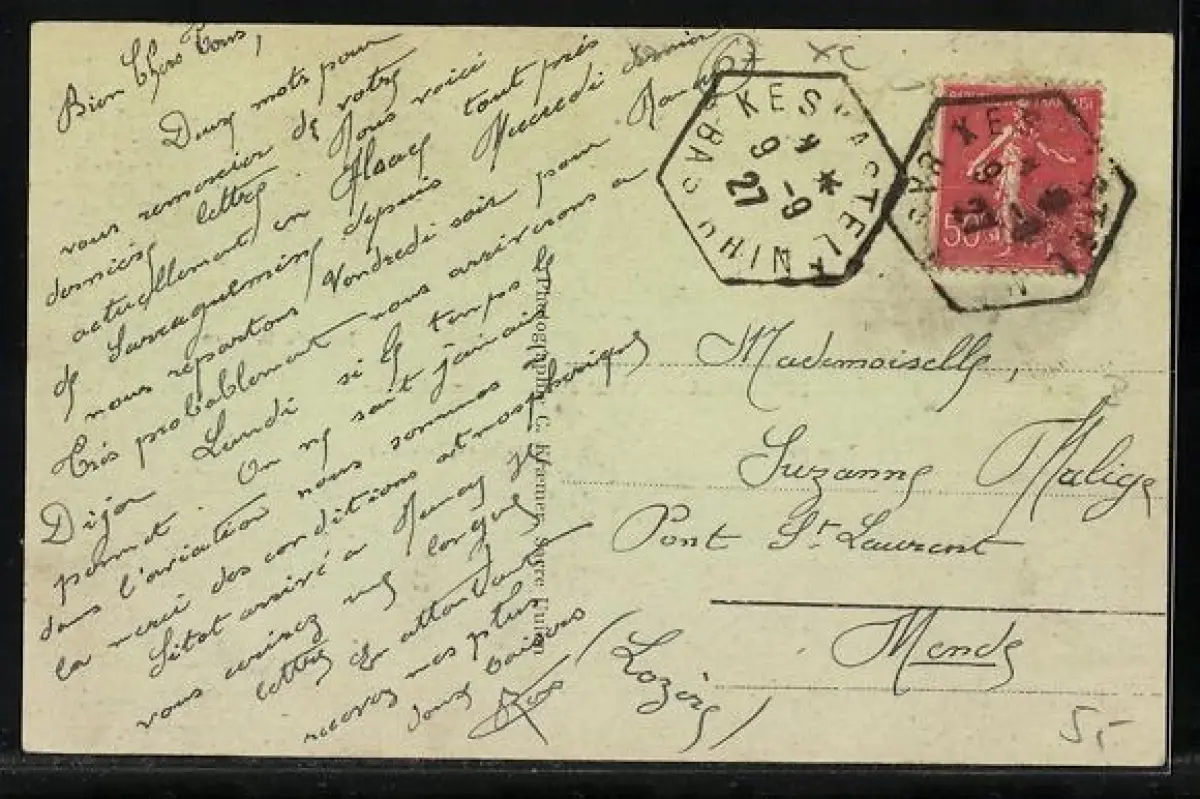 Bien Chers Tous,
Deux mots pour
vous remercier de votre
dernière lettre. Nous voici
actuellement en Alsace tout près
de Sarreguemines depuis Mercredi dernier
nous repartons Vendredi soir pour Nancy et
Très probablement nous arriverons à
Dijon Lundi si le temps le
permet. On ne sait jamais
dans l'aviation nous sommes à
la merci des conditions atmosphériques
Sitôt arrivé à Nancy je
vous écrirez une longue
lettre. En attendant
recevez mes plus
doux baisers
KESKASTEL
9 -9
27
BAS-RHIN
KESKASTEL
9 -9
27
BAS-RHIN
50
Photographie C. Kraemer, Saare Union
Mademoiselle,
Suzanne Malige
Pont St Laurent
Mende
(Lozère)